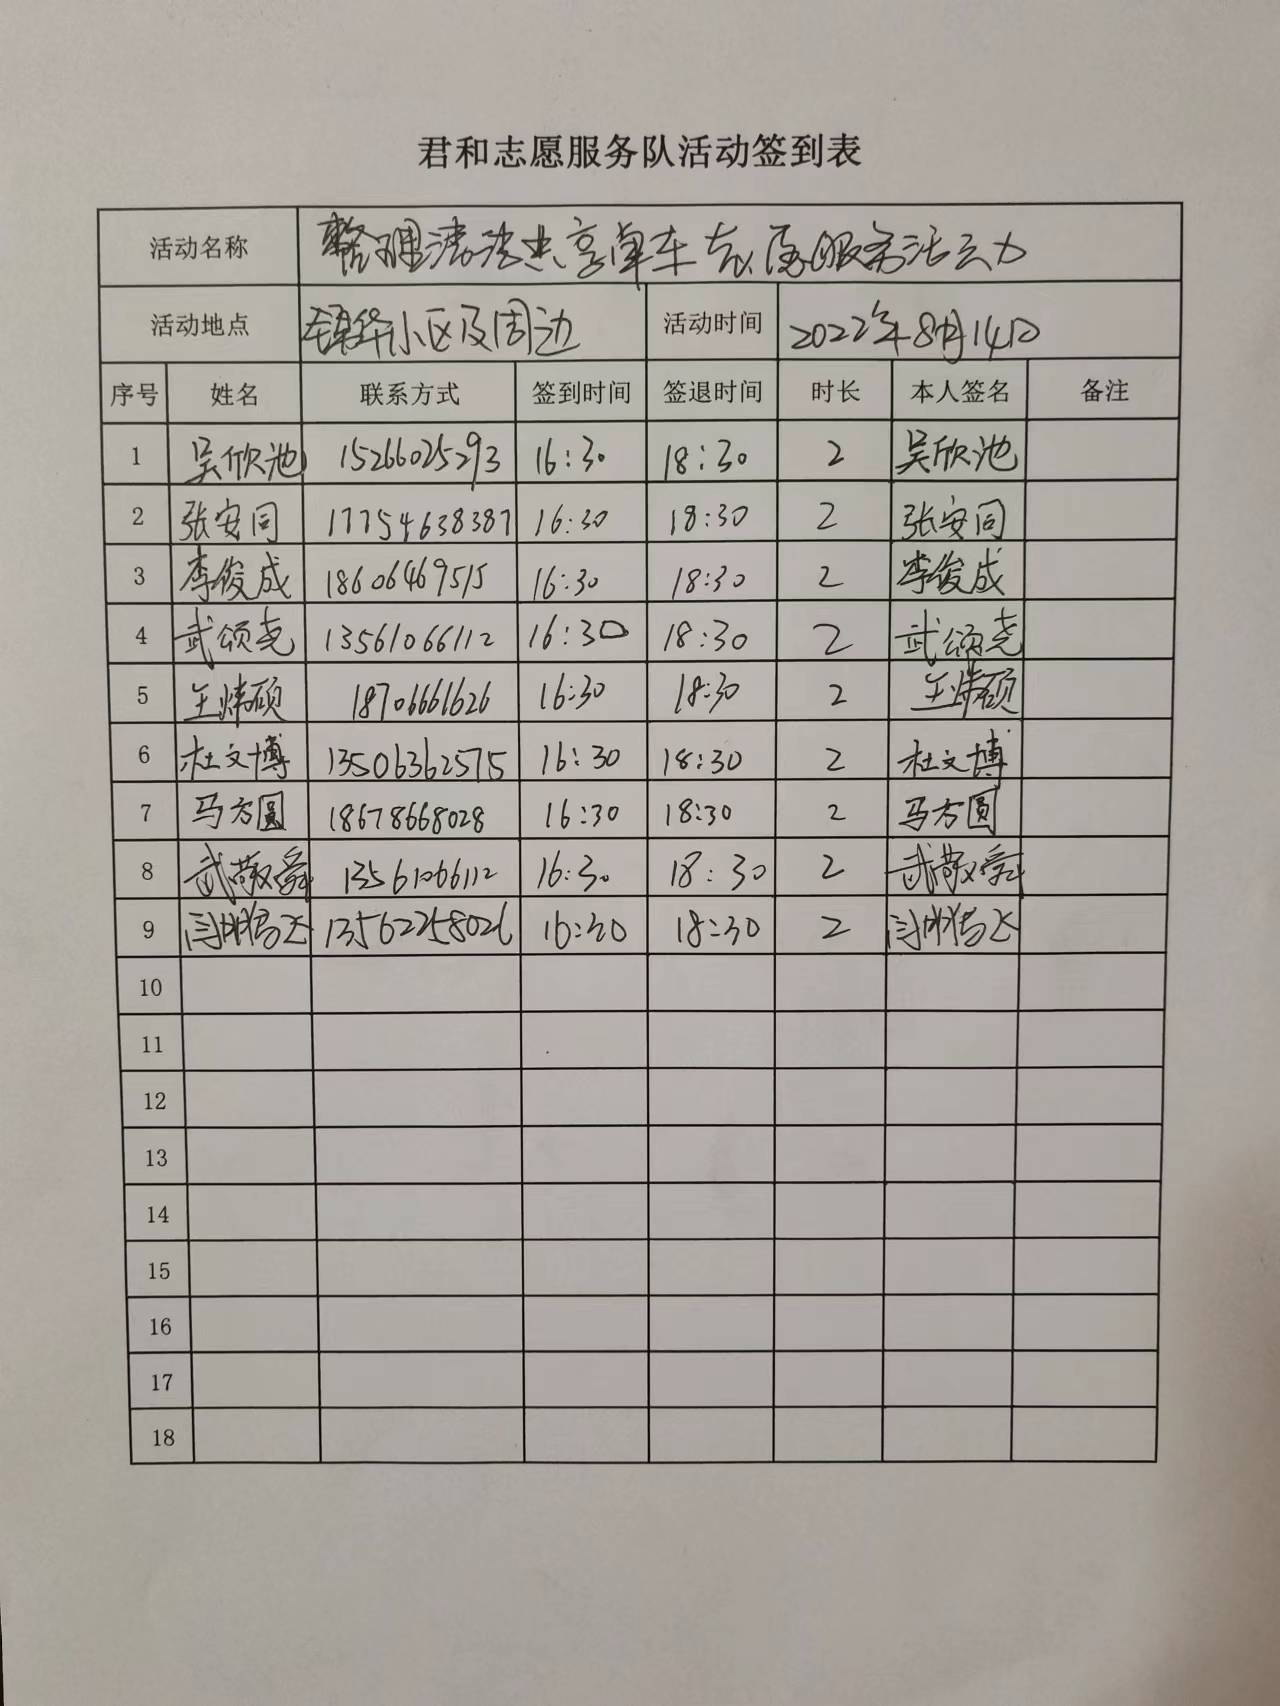 君和志愿服务队活动签到表
活动名称 整理清洁共享单车志愿服务活动
活动地点 锦华小区及周边 活动时间 2022年8月14日
序号 姓名 联系方式 签到时间 签退时间 时长 本人签名 备注
1 吴欣池 15266025293 16:30 18:30 2 吴欣池
2 张安同 17754638387 16:30 18:30 2 张安同
3 李俊成 18606469515 16:30 18:30 2 李俊成
4 武颂尧 13561066112 16:30 18:30 2 武颂尧
5 王炜硕 18706661626 16:30 18:30 2 王炜硕
6 杜文博 13506362575 16:30 18:30 2 杜文博
7 马方圆 18678668028 16:30 18:30 2 马方圆
8 武敬舜 13561066112 16:30 18:30 2 武敬舜
9 13562258026 16:30 18:30 2
10
11
12
13
14
15
16
17
18